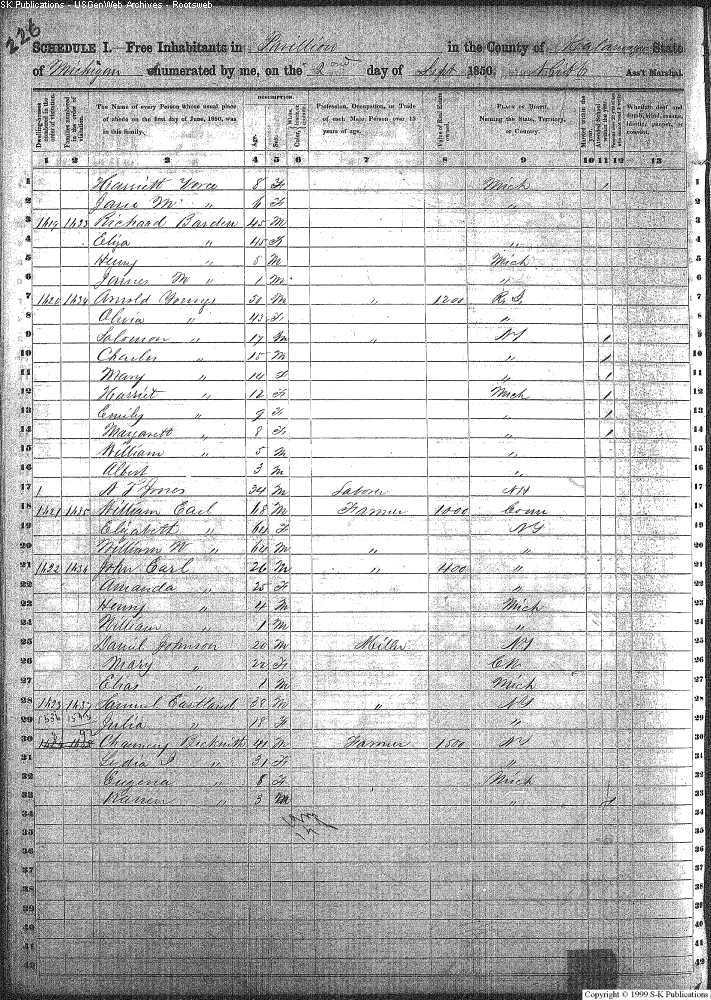 SK Publications - USGenWeb Archives - Rootsweb
226
SCHEDULE I.—Free Inhabitants in Pavillion in the County of Kalamazoo State
of Michigan enumerated by me, on the 2nd day of Sept 1850. Ass't Marshal.
DESCRIPTION.
Dwelling-houses numbered in the order of visitation. Families numbered in the order of visitation. The Name of every Person whose usual place of abode on the first day of June, 1850, was in this family. Age. Sex. Color, Profession, Occupation, or Trade of each Male Person over 15 years of age. Value of Real Estate owned. PLACE OF BIRTH. Naming the State, Territory, or Country. Married within the year. Attended School within the year. Whether deaf and dumb, blind, insane, idiotic, pauper, or convict.
1 2 3 4 5 6 7 8 9 10 11 12 13
1 Harriett 8 F Mich / 1
2 Jane M. " 6 F " 2
3 1419 1433 Richard Barden 45 M 3
4 Eliza " 45 F " 4
5 Henry " 5 M Mich 5
6 James M " 1 M " 6
7 1420 1434 Arnold Youngs 50 M " 1200 R. I. 7
8 Olivia " 43 F " 8
9 Salomon " 17 M " NY / 9
10 Charles " 15 M " / 10
11 Mary " 14 F " / 11
12 Harriet " 12 F Mich / 12
13 Emily " 9 F " / 13
14 Margarett " 8 F " / 14
15 William " 5 M " 15
16 Albert 3 M " 16
17 1 Jones 34 M Laborer NH 17
18 1421 1435 William Earl 68 M Farmer 1000 Conn 18
19 Elizabeth " 64 F NY 19
20 William W " 64 M " " 20
21 1422 1436 John Earl 26 M " 400 " 21
22 Amanda " 25 F " 22
23 Henry " 4 M Mich 23
24 William " 1 M " 24
25 Daniel Johnson 20 M Miller NY 25
26 Mary " 22 F 26
27 Elias " 1 M Mich 27
28 1423 1437 Samuel Eastland 38 M " NY 28
29 Julia " 18 F " 29
30 Chauncey Beckwith 41 M Farmer 1500 NY 30
31 Lydia " 31 F " 31
32 Eugena " 8 F Mich 32
33 " 3 M " 33
34 34
35 35
36 36
37 37
38 38
39 39
40 40
41 41
42 42
Copyright © 1999 S-K Publications